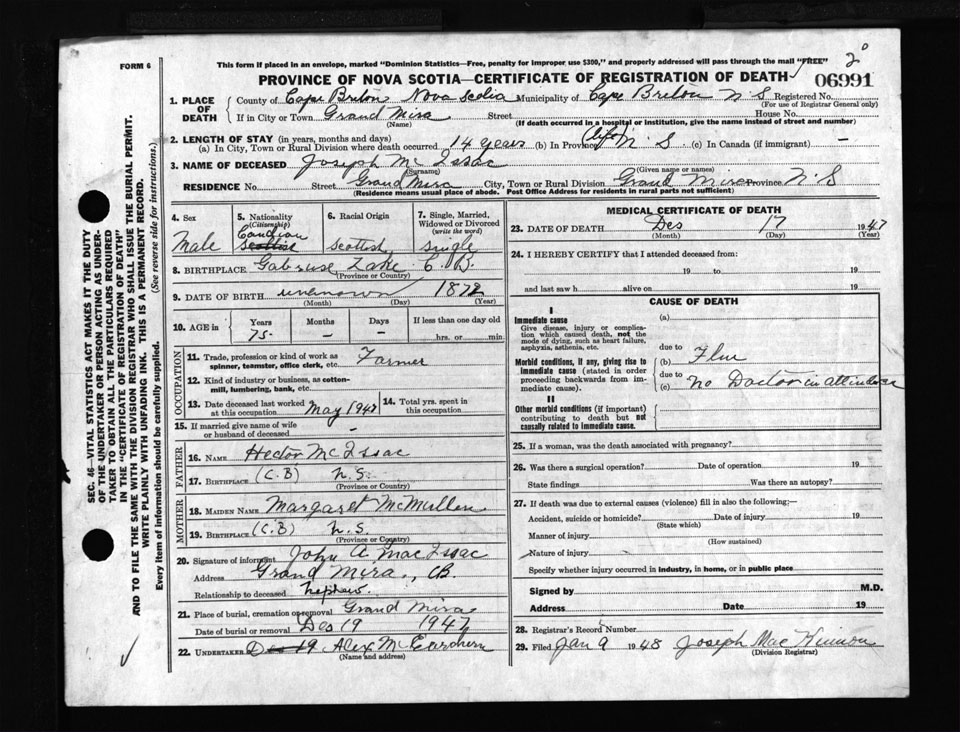 FORM 6
This form if placed in an envelope, marked "Dominion Statistics—Free, penalty for improper use $300," and properly addressed will pass through the mail "FREE"
2
PROVINCE OF NOVA SCOTIA—CERTIFICATE OF REGISTRATION OF DEATH
06991
1. PLACE OF DEATH
County of Cape Breton Nova Scotia Municipality of Cape Breton N S Registered No.
(For use of Registrar General only)
If in City or Town Grand Mira Street House No.
(Name) (If death occurred in a hospital or institution, give the name instead of street and number)
2. LENGTH OF STAY (in years, months and days)
(a) In City, Town or Rural Division where death occurred 14 years (b) In Province life N S (c) In Canada (if immigrant) —
3. NAME OF DECEASED Joseph Mc Issac
(Surname) (Given name or names)
RESIDENCE No. Street Grand Mira City, Town or Rural Division Grand Mira Province N.S
(Residence means usual place of abode. Post Office Address for residents in rural parts not sufficient)
4. Sex
Male
5. Nationality
(Citizenship)
Candian
Scottish
6. Racial Origin
Scottish
7. Single, Married, Widowed or Divorced
(write the word)
Single
8. BIRTHPLACE Gabruse Lake C. B.
(Province or Country)
9. DATE OF BIRTH unknown 1872
(Month) (Day) (Year)
10. AGE in
Years Months Days If less than one day old
75 - - hrs. or min.
OCCUPATION
11. Trade, profession or kind of work as spinner, teamster, office clerk, etc. Farmer
12. Kind of industry or business, as cotton-mill, lumbering, bank, etc.
13. Date deceased last worked at this occupation May 1947
14. Total yrs. spent in this occupation
15. If married give name of wife or husband of deceased -
FATHER
16. NAME Hector Mc Issac
17. BIRTHPLACE (C.B) N.S.
(Province or Country)
MOTHER
18. MAIDEN NAME Margaret McMullen
19. BIRTHPLACE (C.B) N.S.
(Province or Country)
20. Signature of informant John A. MacIssac
Address Grand Mira, CB.
Relationship to deceased nephew.
21. Place of burial, cremation or removal Grand Mira
Date of burial or removal Des 19 1947
22. UNDERTAKER Des 19 Alex McEardhern
(Name and address)
MEDICAL CERTIFICATE OF DEATH
23. DATE OF DEATH Des 17 1947
(Month) (Day) (Year)
24. I HEREBY CERTIFY that I attended deceased from:
19 to 19
and last saw h alive on 19
CAUSE OF DEATH
I
Immediate cause (a)
Give disease, injury or complication which caused death, not the mode of dying, such as heart failure, asphyxia, asthenia, etc.
due to
Morbid conditions, if any, giving rise to immediate cause (stated in order proceeding backwards from immediate cause).
(b) Flue
due to
(c) no Doctor in attendance
II
Other morbid conditions (if important) contributing to death but not causally related to immediate cause.
25. If a woman, was the death associated with pregnancy?
26. Was there a surgical operation? Date of operation 19
State findings Was there an autopsy?
27. If death was due to external causes (violence) fill in also the following:—
Accident, suicide or homicide? Date of injury 19
(State which)
Manner of injury
(How sustained)
Nature of injury
Specify whether injury occurred in industry, in home, or in public place
Signed by M.D.
Address Date 19
28. Registrar's Record Number
29. Filed Jan 9 1948 Joseph MacKinnon
(Division Registrar)
SEC. 46—VITAL STATISTICS ACT MAKES IT THE DUTY
OF THE UNDERTAKER OR PERSON ACTING AS UNDER-
TAKER TO OBTAIN ALL THE PARTICULARS REQUIRED
IN THE "CERTIFICATE OF REGISTRATION OF DEATH"
AND TO FILE THE SAME WITH THE DIVISION REGISTRAR WHO SHALL ISSUE THE BURIAL PERMIT.
WRITE PLAINLY WITH UNFADING INK. THIS IS A PERMANENT RECORD.
Every item of information should be carefully supplied. (See reverse side for instructions.)